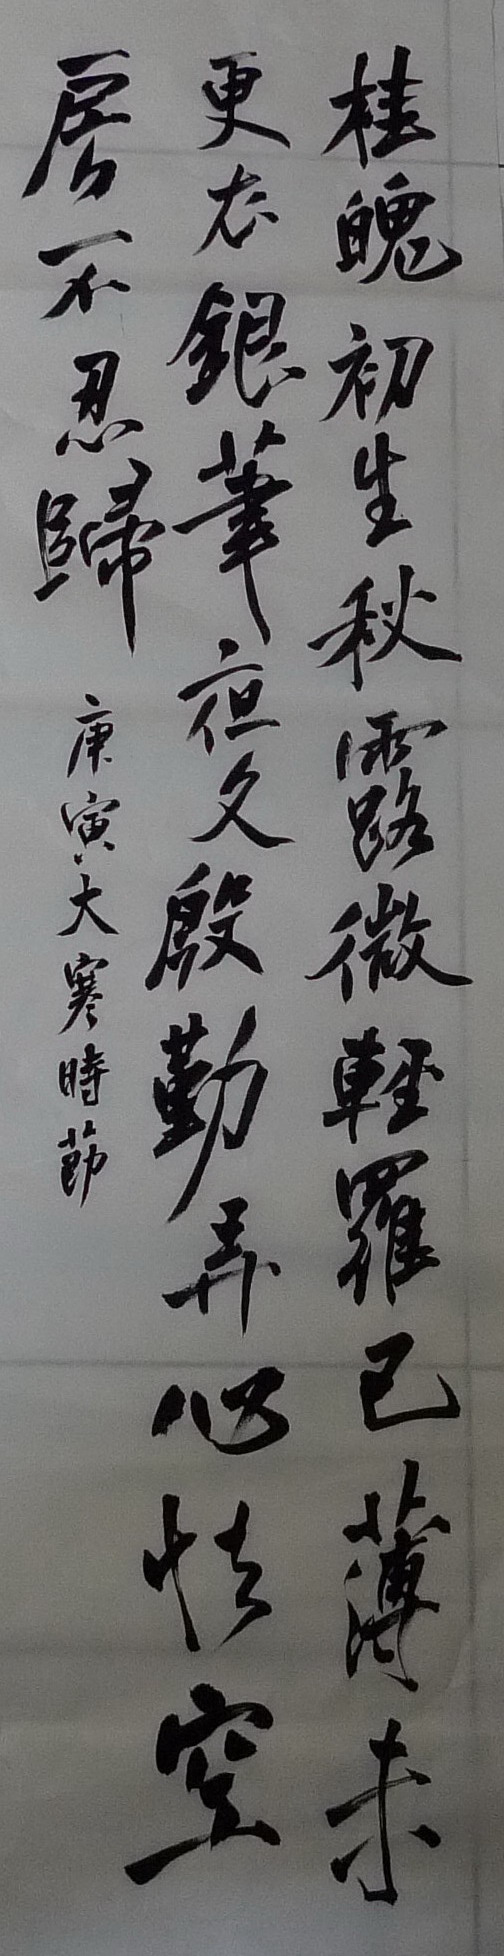 桂魄初生秋露微輕羅已薄未
更衣銀箏夜久殷勤弄心怯空
房不忍歸 庚寅大寒時節